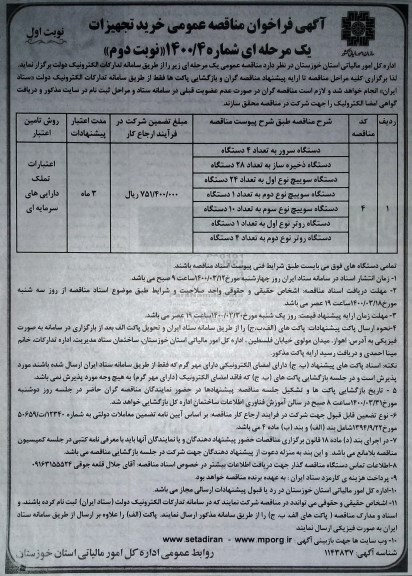 نوبت اول
آگهی فراخوان مناقصه عمومی خرید تجهیزات
یک مرحله ای شماره ۱۴۰۰/۴ «نوبت دوم»
اداره کل امور مالیاتی استان خوزستان در نظر دارد مناقصه عمومی یک مرحله ای زیر را از طریق سامانه تدارکات الکترونیک دولت برگزار نماید.
لذا برگزاری کلیه مراحل مناقصه تا ارایه پیشنهاد مناقصه گران و بازگشایی پاکت ها فقط از طریق سامانه تدارکات الکترونیک دولت «ستاد
ایران» انجام خواهد شد و لازم است مناقصه گران در صورت عدم عضویت قبلی در سامانه ستاد و مراحل ثبت نام در سایت مذکور و دریافت
گواهی امضا الکترونیک را جهت شرکت در مناقصه محقق سازند.
ردیف
کد مناقصه
شرح مناقصه طبق شرح پیوست مناقصه
مبلغ تضمین شرکت در فرآیند ارجاع کار
مدت اعتبار پیشنهادات
روش تامین اعتبار
۱
۴
دستگاه سرور به تعداد ۴ دستگاه
دستگاه ذخیره ساز به تعداد ۲۸ دستگاه
دستگاه سوییچ نوع اول به تعداد ۲۴ دستگاه
دستگاه سوییچ نوع دوم به تعداد ۱ دستگاه
دستگاه سوییچ نوع سوم به تعداد ۱۰ دستگاه
دستگاه روتر نوع اول به تعداد ۱ دستگاه
دستگاه روتر نوع دوم به تعداد ۴ دستگاه
۷۵۱/۴۰۰/۰۰۰ ریال
۳ ماه
اعتبارات تملک دارایی های سرمایه ای
تمامی دستگاه های فوق می بایست طبق شرایط فنی پیوست اسناد مناقصه باشند.
۱- زمان انتشار اسناد در سامانه ستاد ایران روز چهارشنبه مورخ ۱۴۰۰/۰۳/۱۲ ساعت ۹ صبح می باشد.
۲- مهلت دریافت اسناد مناقصه: اشخاص حقیقی و حقوقی واجد صلاحیت و شرایط طبق موضوع اسناد مناقصه از روز سه شنبه
مورخ ۱۴۰۰/۰۳/۱۸ ساعت ۱۹ عصر می باشد.
۳- مهلت زمان ارایه پیشنهاد قیمت: روز یک شنبه مورخ ۱۴۰۰/۰۳/۳۰ ساعت ۱۹ عصر می باشد.
۴-نحوه ارسال پاکت پیشنهادات: پاکت های (الف،ب،ج) را از طریق سامانه ستاد ایران و تحویل پاکت الف بعد از بارگزاری در سامانه به صورت
فیزیکی به آدرس: اهواز، میدان مولوی خیابان فلسطین، اداره کل امور مالیاتی استان خوزستان، ساختمان ستاد مدیریت، اداره تدارکات، خانم
مینا احمدی و دریافت رسید ارایه پاکت مذکور.
نکته: اسناد پاکت های پیشنهاد (ب، ج) دارای امضای الکترونیکی دارای مهر گرم که فقط از طریق سامانه ستاد ایران ارسال شده باشند مورد
پذیرش است و در جلسه بازگشایی پاکت های (ب، ج) که فاقد امضای الکترونیک (دارای مهر گرم) به هیچ وجه مورد پذیرش نمی باشد.
۵ - تاریخ بازگشایی پاکت ها و تشکیل جلسه مناقصه: پیشنهادها در حضور نمایندگان مناقصه گران حاضر در جلسه روز دوشنبه
مورخ ۱۴۰۰/۰۳/۳۱ ساعت ۸ صبح در سالن آموزش فناوری اطلاعات ساختمان اداره کل بازگشایی خواهد شد.
۶- نوع تضمین قابل قبول جهت شرکت در فرایند ارجاع کار مناقصه: بر اساس آیین نامه تضمین معاملات دولتی به شماره ۱۲۳۴۰۲/ت۵۰۶۵۹
مورخ ۱۳۹۴/۹/۲۲ شامل بند (الف) و بند (ب) ماده ۴ می باشد.
۷- در اجرای بند (د) ماده ۱۸ قانون برگزاری مناقصات حضور پیشنهاد دهندگان و یا نمایندگان آنها باید با معرفی نامه کتبی در جلسه کمیسیون
مناقصه بلامانع می باشد. و این بند به منزله دعوت از پیشنهاد دهندگان جهت شرکت در جلسه بازگشایی مناقصه می باشد.
۸-اطلاعات تماس دستگاه مناقصه گذار جهت دریافت اطلاعات بیشتر در خصوص اسناد مناقصه: آقای جلال قلعه جوقی ۰۹۱۶۳۱۵۵۵۲۴
۹- پرداخت هزینه ی کارمزد ستاد ایران ، به عهده برنده مناقصه خواهد بود.
۱۰-اداره کل امور مالیاتی استان خوزستان در رد یا قبول پیشنهادات ارسالی مجاز می باشد.
۱۱- اشخاص حقیقی و حقوقی می توانند در مناقصه شرکت نمایند که در سامانه تدارکات الکترونیک دولت (ستاد ایران) ثبت نام کرده باشند. و
اسناد و مدارک مناقصه ( پاکت های الف، ب، ج) را از طریق سامانه مذکور ارسال نمایند. پاکت (الف) را علاوه بر ارسال از طریق سامانه ستاد
ایران به صورت فیزیکی ارسال نمایند
۱۰- وب سایت ها جهت بازبینی آگهی: www.setadiran - www.mporg.ir
شناسه آگهی: ۱۱۴۳۸۳۷
روابط عمومی اداره کل امور مالیاتی استان خوزستان